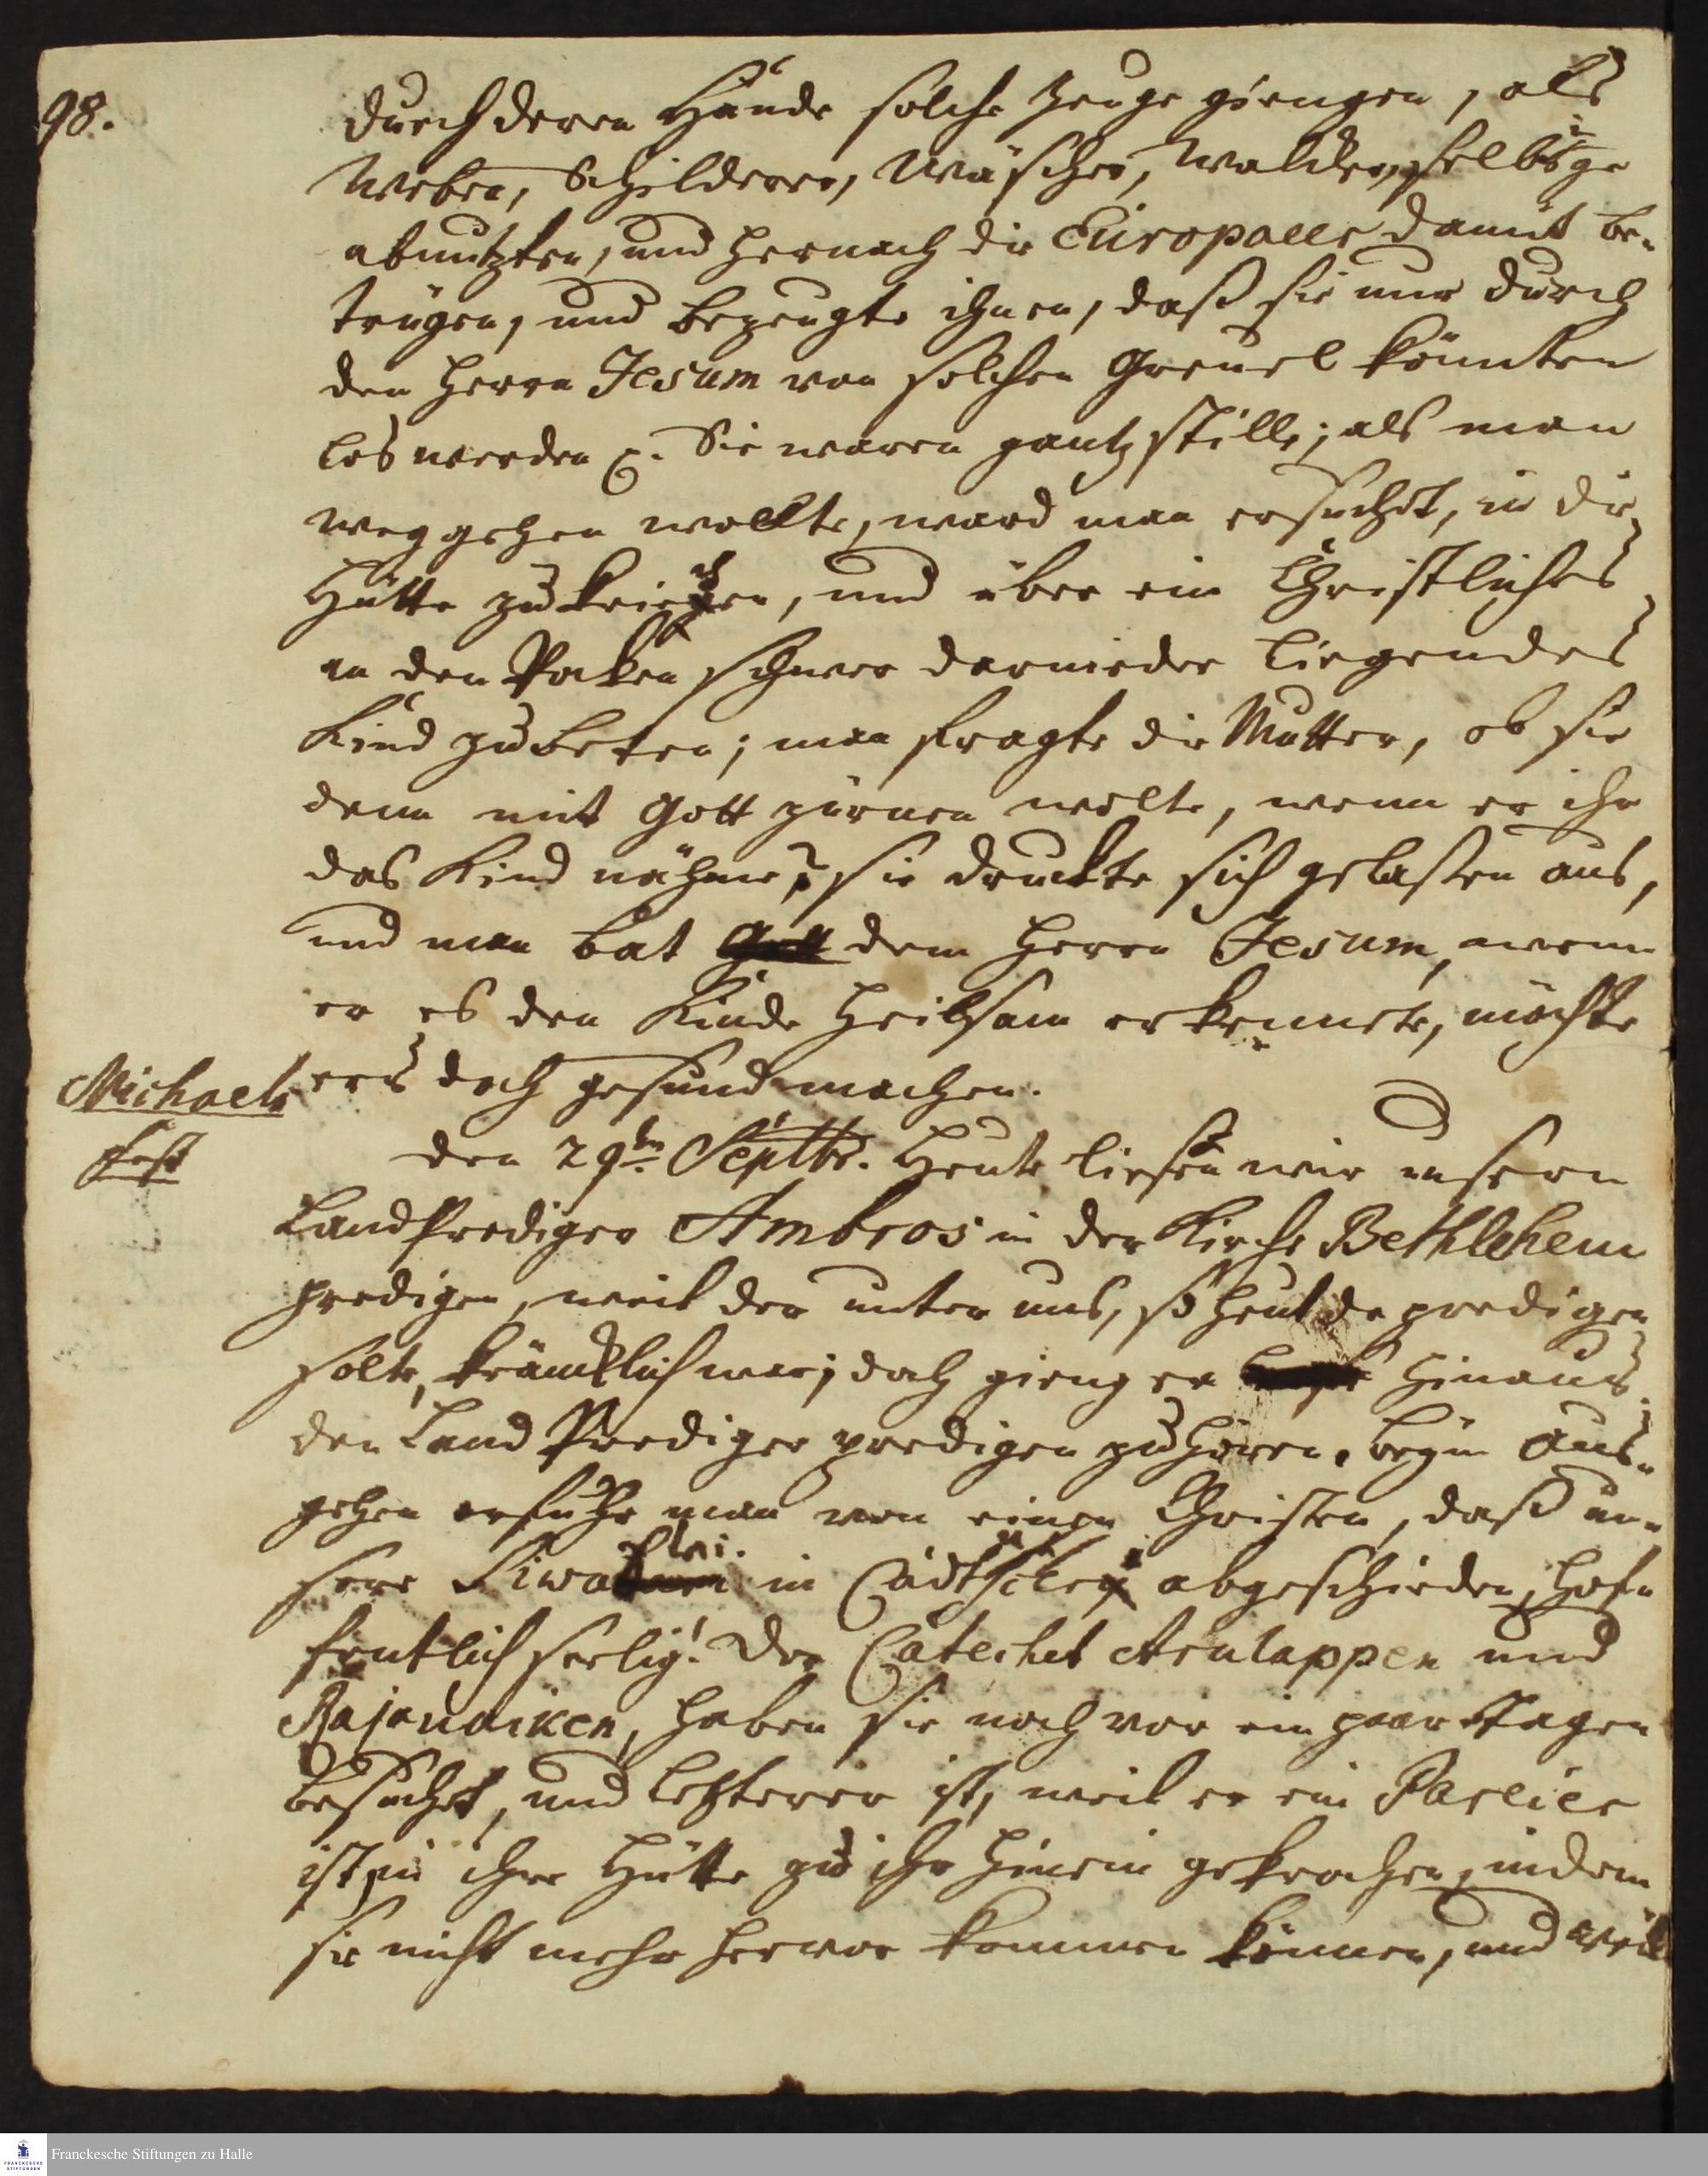 98.
durch deren Hände solche Zeuge giengen, als
Weber, Schilderer, Wäscher, Walcker, selbige
abnutzten, und hernach die Europaeer damit be-
trügen, und bezeugte ihnen, daß sie nur durch
den Herrn Jesum von solchen Greuel könnten
los werden. Sie waren gantz stille; als man
weg gehen wollte, ward man ersuchet, in die
Hütte zu kriechen, und über ein Christliches
an den Poken schwer darnieder liegendes
Kind zu beten; man fragte die Mutter, ob sie
denn mit Gott zürnen wolte, wenn er ihr
das Kind nähme? sie druckte sich gelassen aus,
und man bat Gott dem Herrn Jesum, wenn
er es den Kinde heilsam erkennete, möchte
ers doch gesund machen.
Michaels
Fest
den 29ten Septbr. Heute liesen wir unsern
Landprediger Ambros in der Kirche Bethlehem
predigen, weil der unter uns, so heut da predigen
solte, kräncklich war; doch gieng er hinaus
den Land Prediger predigen zu hören. beym Aus-
gehen erfuhr man von einen Christen, daß un-
sere Siwa in Cadtscheri abgeschieden, hof-
fentlich seelig! Der Catechet Arulappen und
Rajanaiken, haben sie noch vor ein paar Tagen
besuchet, und letzterer ist, weil er ein Parreier
ist, in ihre Hütte zu ihr hinein gekrochen, indem
sie nicht mehr hervor kommen können, und weil
Franckesche Stiftungen zu Halle